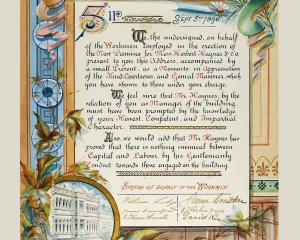 Sept 5th 1896
We, the undersigned, on behalf
of the Workmen Employed in the erection of
the New Premises for Mess Herbert Haynes & Co
present to you this Address, accompanied by
a small Present, as a Memento, in Appreciation
of the Kind, Courteous and Genial Manner, which
you have shown to those under your charge.
We feel sure that Mr. Haynes, by the
selection of you as Manager of the building
must have been prompted by the knowledge
of your Honest, Competent, and Impartial
Character.
Also, we would add that Mr. Haynes has
proved that there is nothing inimical between
Capital and Labour, by his Gentlemanly
Conduct towards those engaged on the building.
Signed on behalf of the Workmen
William
James
William
David